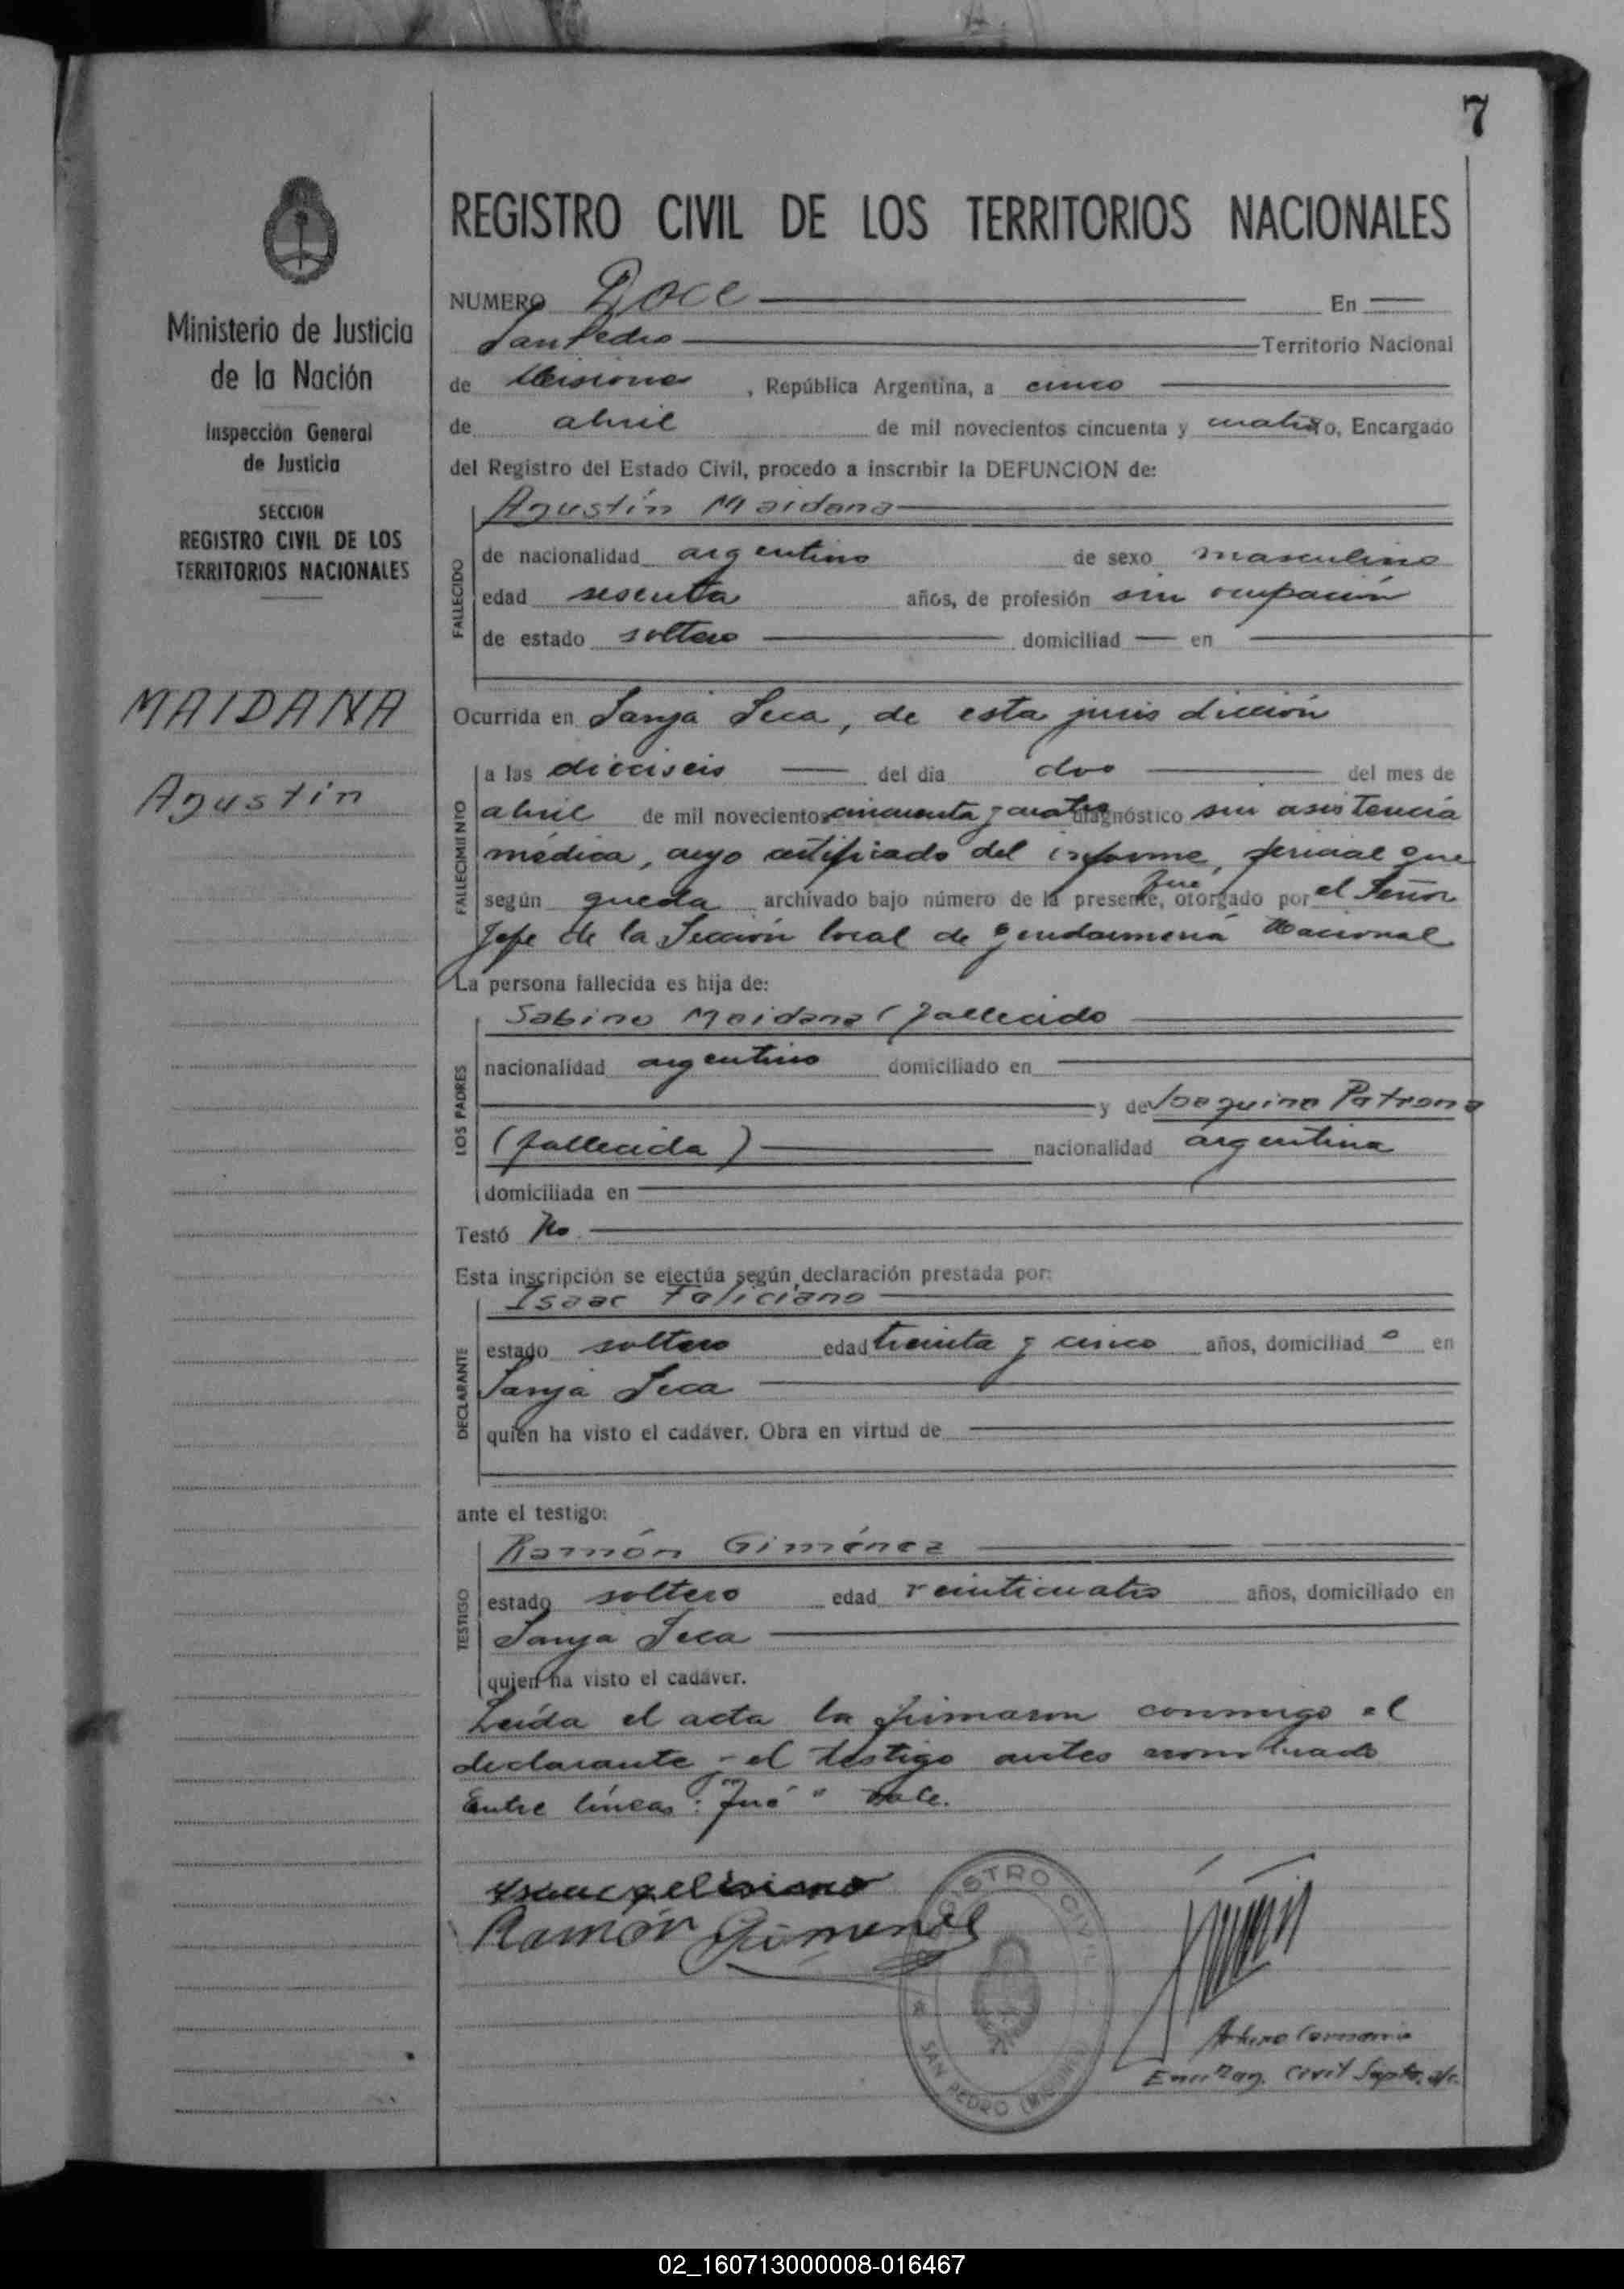 7
Ministerio de Justicia
de la Nación
Inspección General
de Justicia
SECCION
REGISTRO CIVIL DE LOS
TERRITORIOS NACIONALES
MAIDANA
Agustín
REGISTRO CIVIL DE LOS TERRITORIOS NACIONALES
NUMERO Doce En
San Pedro Territorio Nacional
de Misiones, República Argentina, a cinco
de abril de mil novecientos cincuenta y cuatro, Encargado
del Registro del Estado Civil, procedo a inscribir la DEFUNCION de:
FALLECIDO
Agustín Maidana
de nacionalidad argentino de sexo masculino
edad sesenta años, de profesión sin ocupación
de estado soltero domiciliad en
Ocurrida en Sanja Seca, de esta jurisdicción
FALLECIMIENTO
a las dieciseis del día dos del mes de
abril de mil novecientos cincuenta y cuatro diagnóstico sin asistencia
médica, cuyo certificado del informe pericial que
según queda archivado bajo número de la presente, fué otorgado por el Señor
Jefe de la Sección local de Gendarmería Nacional
La persona fallecida es hija de:
LOS PADRES
Sabino Maidana (fallecido
nacionalidad argentino domiciliado en
y de Joaquina Patrona
(fallecida) nacionalidad argentina
domiciliada en
Testó No
Esta inscripción se efectúa según declaración prestada por:
DECLARANTE
Isaac Feliciano
estado soltero edad treinta y cinco años, domiciliad o en
Sanja Seca
quien ha visto el cadáver. Obra en virtud de
ante el testigo:
TESTIGO
Ramón Giménez
estado soltero edad veinticuatro años, domiciliado en
Sanja Seca
quien ha visto el cadáver.
Leída el acta la firmaron conmigo el
declarante y el testigo antes nombrado
Entre líneas: "fué" Vale.
Isaac felisiano
Ramón Gimenez
REGISTRO CIVIL
SAN PEDRO (MISIONES)
Arturo
Enc. Reg. Civil Supte. a/c.
02_160713000008-016467